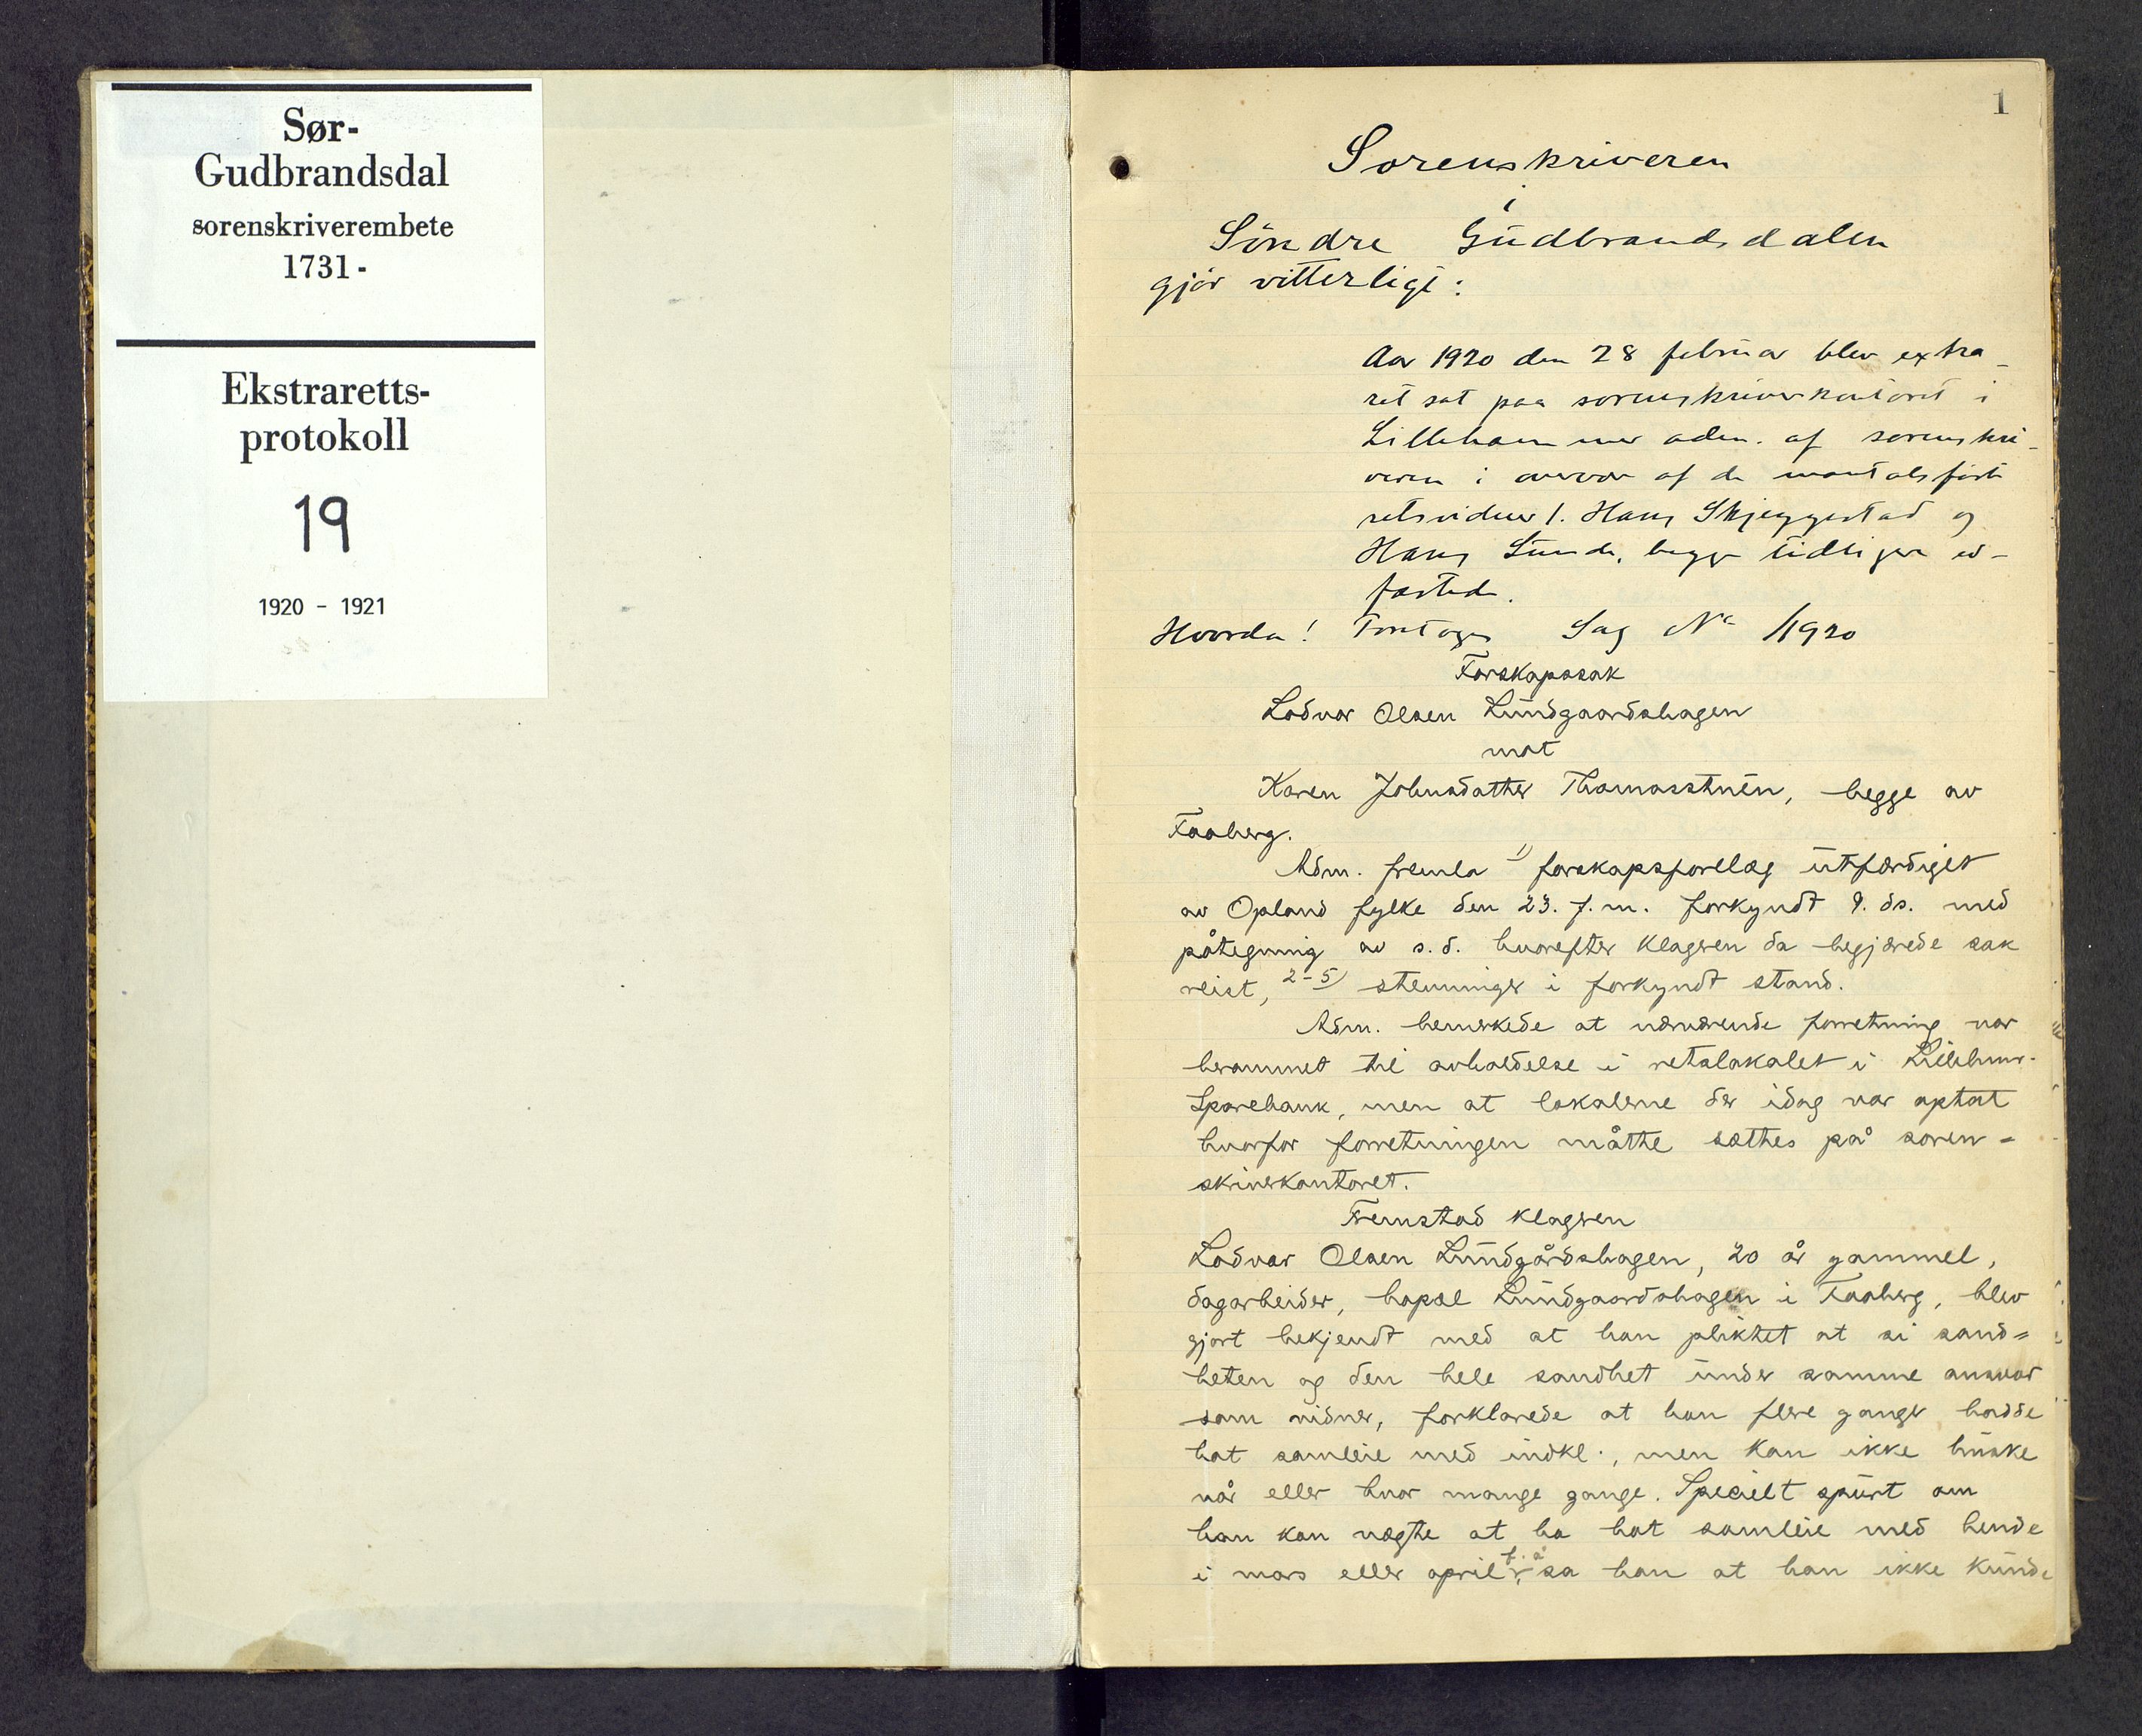 Sør-
Gudbrandsdal
sorenskriverembete
1731-
Ekstraretts-
protokoll
19
1920 - 1921
1
Sorenskriveren
i
Söndre Gudbrandsdalen
gjör vitterligt:
Aar 1920 den 28 februar blev extra-
ret sat paa sorenskriverkontoret i
Lillehammer adm. af sorenskri-
veren i overvær af de mantalsförte
retsvidner 1. Hans Skjeggestad og
Hans Lunde, begge tidligere ed-
fæstede.
Hvorda! Foretoges Sag No /1920
Farskapssak
Lodvar Olsen Lundgaardshagen
mot
Karen Johnsdatter Thomasstuen, begge av
Faaberg.
Adm. fremla 1) farskapsforelæg utfærdiget
av Opland fylke den 23. f.m. forkyndt 9. ds. med
påtegning av s.d. hvorefter klageren da begjærede sak
reist, 2-5) stevninger i forkyndt stand.
Adm. bemerkede at nærværende forretning var
berammet til avholdelse i retslokalet i Lillehmr.
Sparebank, men at lokalerne der idag var optat
hvorfor forretningen måtte sættes på soren-
skriverkontoret.
Fremstod klageren
Lodvar Olsen Lundgårdshagen, 20 år gammel,
dagarbeider, bopæl Lundgaardshagen i Faaberg, blev
gjort bekjendt med at han pliktet at si sand=
heten og den hele sandhet under samme ansvar
som vidner, forklarede at han flere ganger hadde
hat samleie med indkl., men kan ikke huske
når eller hvor mange gange. Specielt spurt om
han kan nægte at ha hat samleie med hende
i mars eller april f.å. sa han at han ikke kunde